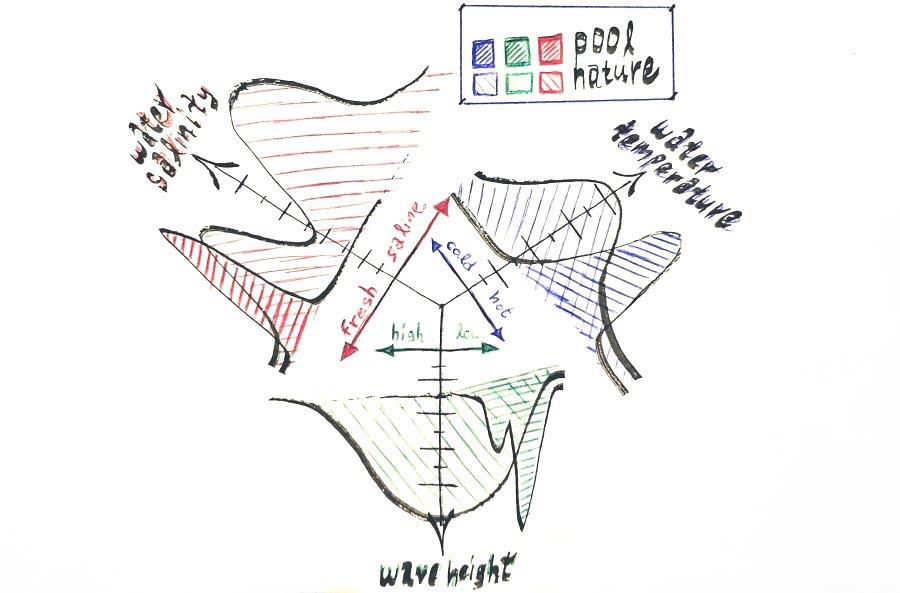 pool
nature
water
salinity
water
temperature
saline
fresh
cold
hot
high
low
wave height